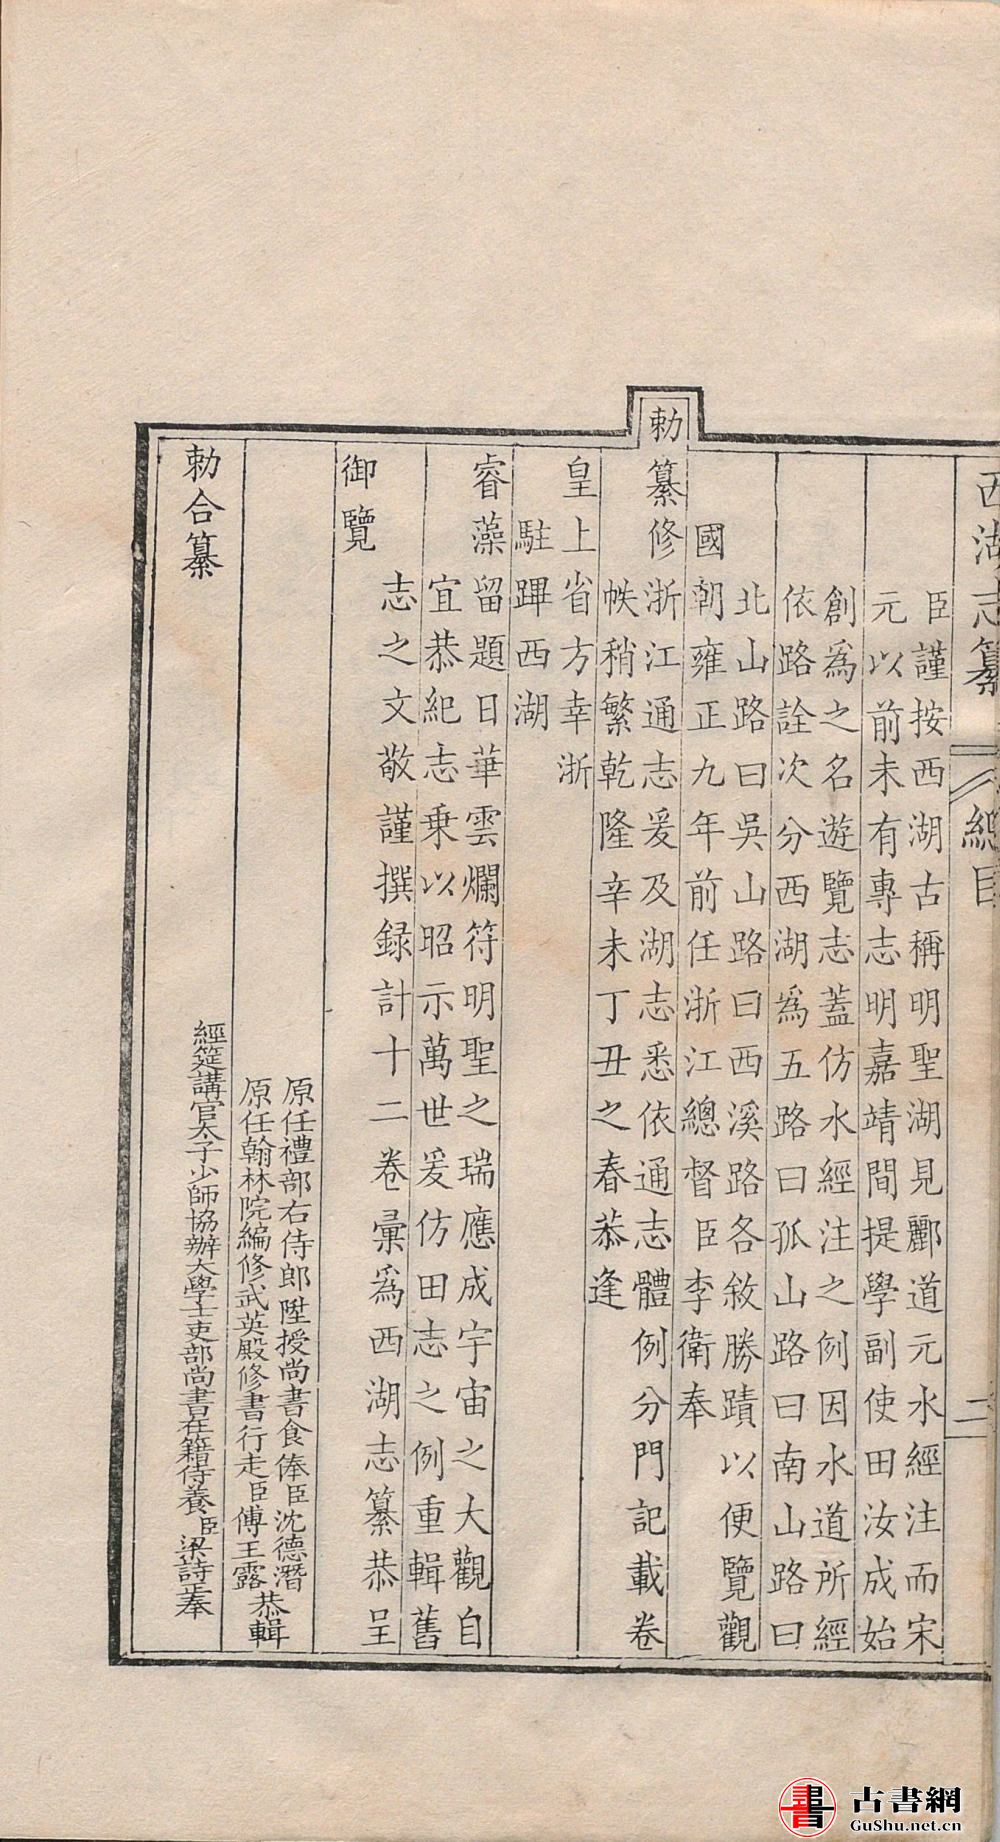 西湖志纂
總目
二
臣謹按西湖古稱明聖湖見酈道元水經注而宋
元以前未有專志明嘉靖間提學副使田汝成始
創爲之名遊覽志蓋仿水經注之例因水道所經
依路詮次分西湖爲五路曰孤山路曰南山路曰
北山路曰吳山路曰西溪路各敘勝蹟以便覽觀
國朝雍正九年前任浙江總督臣李衛奉
勅纂修浙江通志爰及湖志悉依通志體例分門記載卷
帙稍繁乾隆辛未丁丑之春恭逢
皇上省方幸浙
駐蹕西湖
睿藻留題日華雲爛符明聖之瑞應成宇宙之大觀自
宜恭紀志乗以昭示萬世爰仿田志之例重輯舊
志之文敬謹撰録計十二卷彙爲西湖志纂恭呈
御覽
原任禮部右侍郎陞授尚書食俸臣沈德潛
原任翰林院編修武英殿修書行走臣傅王露
恭輯
經筵講官太子少師協辦大學士吏部尚書在籍侍養臣梁詩正奉
勅合纂
古書網
GuShu.net.cn